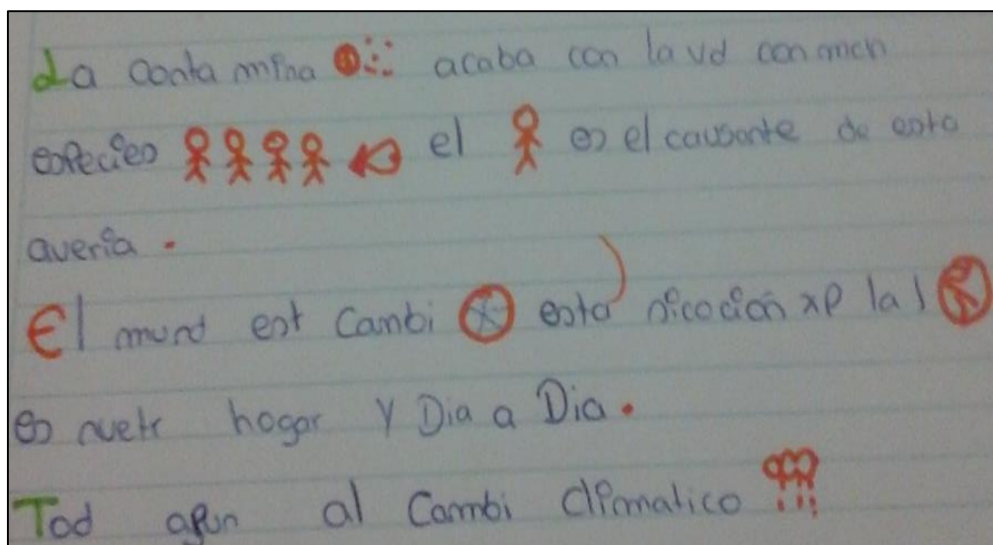 La conta mina acaba con la vd con mch
especies el es el causante de esta
averia .
El mund est Cambi esta sicocion xp la
es nuetr hogar Y Dia a Dia.
Tod apun al Cambi climatico